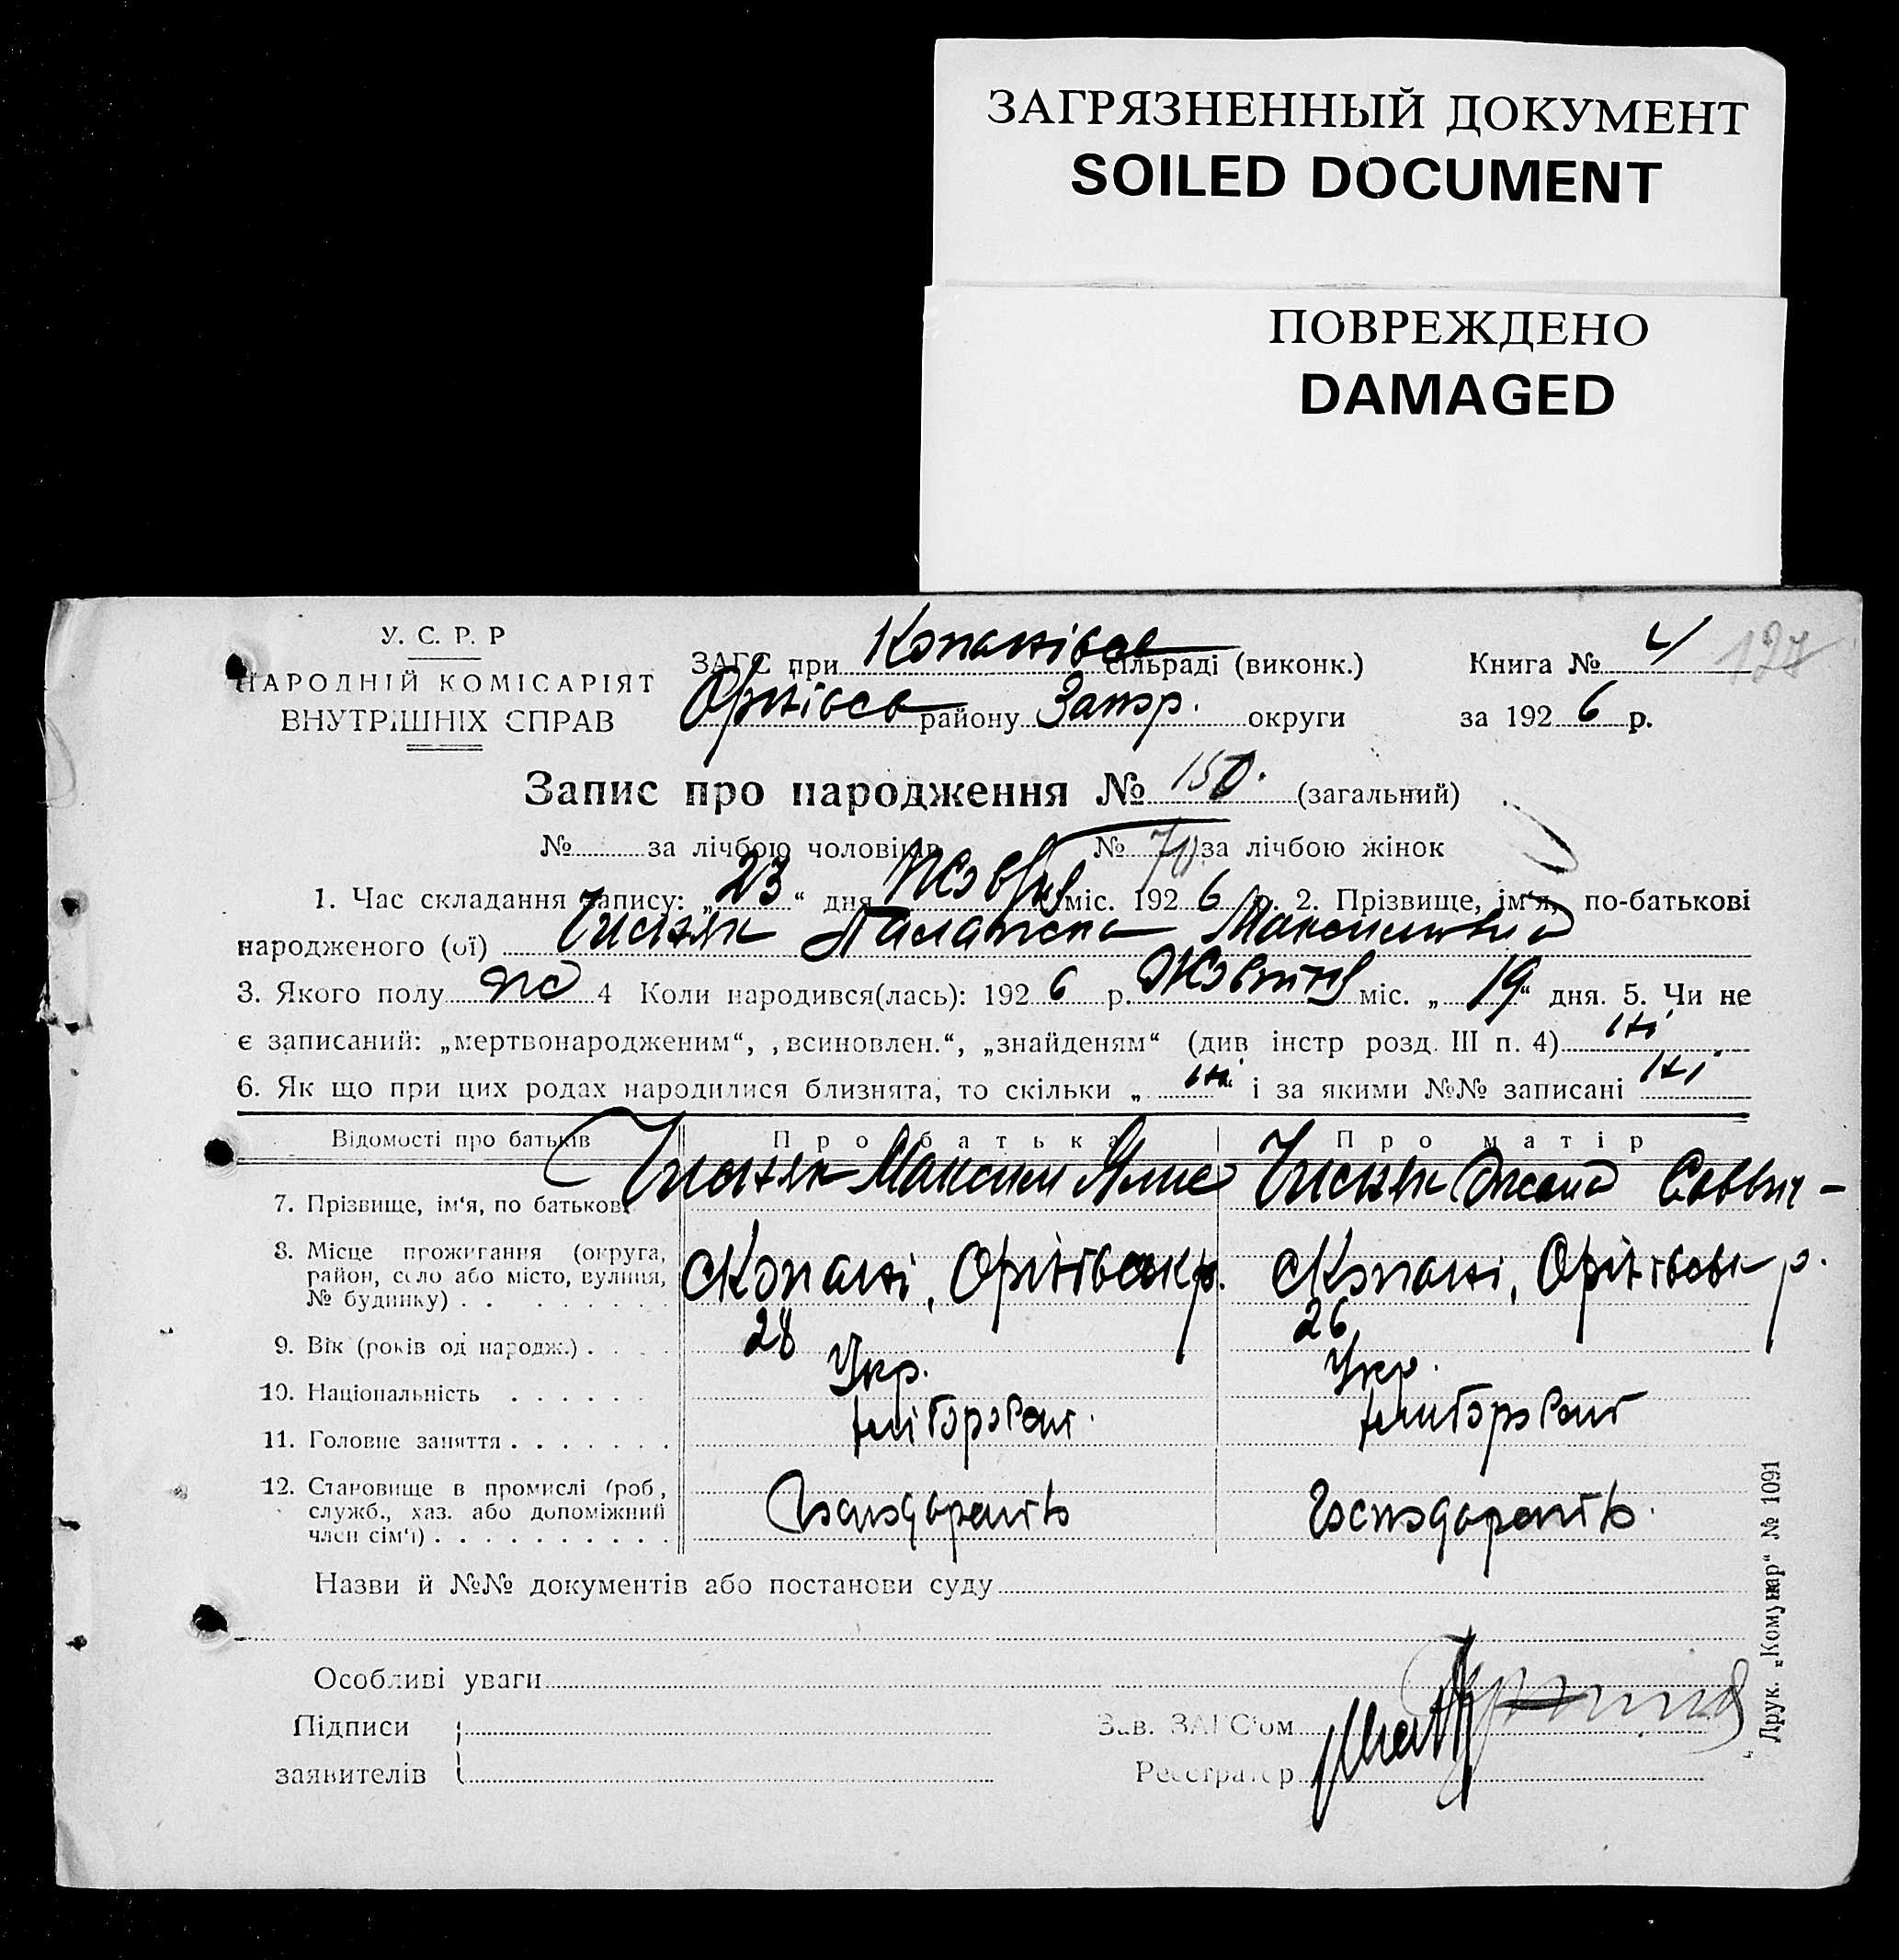 ЗАГРЯЗНЕННЫЙ ДОКУМЕНТ
SOILED DOCUMENT
ПОВРЕЖДЕНО
DAMAGED
У. С. Р. Р
НАРОДНІЙ КОМІСАРІЯТ
ВНУТРІШНІХ СПРАВ
ЗАГС при Копанівськ сільраді (виконк.) Книга № 4 127
Оріхівськ району Запор. округи за 1926 р.
Запис про народження № 150. (загальний)
№ за лічбою чоловіків № 70 за лічбою жінок
1. Час складання запису: „23“ дня Жовтня міс. 1926 р. 2. Прізвище, ім'я, по-батькові
народженого (ої) Палажка Максимівна
3. Якого полу жо 4 Коли народився(лась): 1926 р. Жовтня міс. „19“ дня. 5. Чи не
є записаний: „мертвонародженим“, „всиновлен.“, „знайденям“ (див інстр розд. III п. 4) ні
6. Як що при цих родах народилися близнята, то скільки „ ні “ і за якими №№ записані ні
Відомості про батьків Про батька Про матір
7. Прізвище, ім'я, по батькові Максим
8. Місце проживання (округа, район, село або місто, вулиця, № будинку) . . с Копані, Оріхівськ р. с Копані, Оріхівськ р.
9. Вік (років од народж.) . . . . 28 26
10. Національність . . . . . Укр. Укр.
11. Головне заняття . . . . . . . хліборобст. хліборобст
12. Становище в промислі (роб., служб., хаз. або допоміжний член сім'ї) . . . . . . . . . . Господарить Господарить.
Назви й №№ документів або постанови суду
Особливі уваги
Підписи
заявителів
Зав. ЗАГС'ом
Реєстратор
Друк. „Комунар“ № 1091